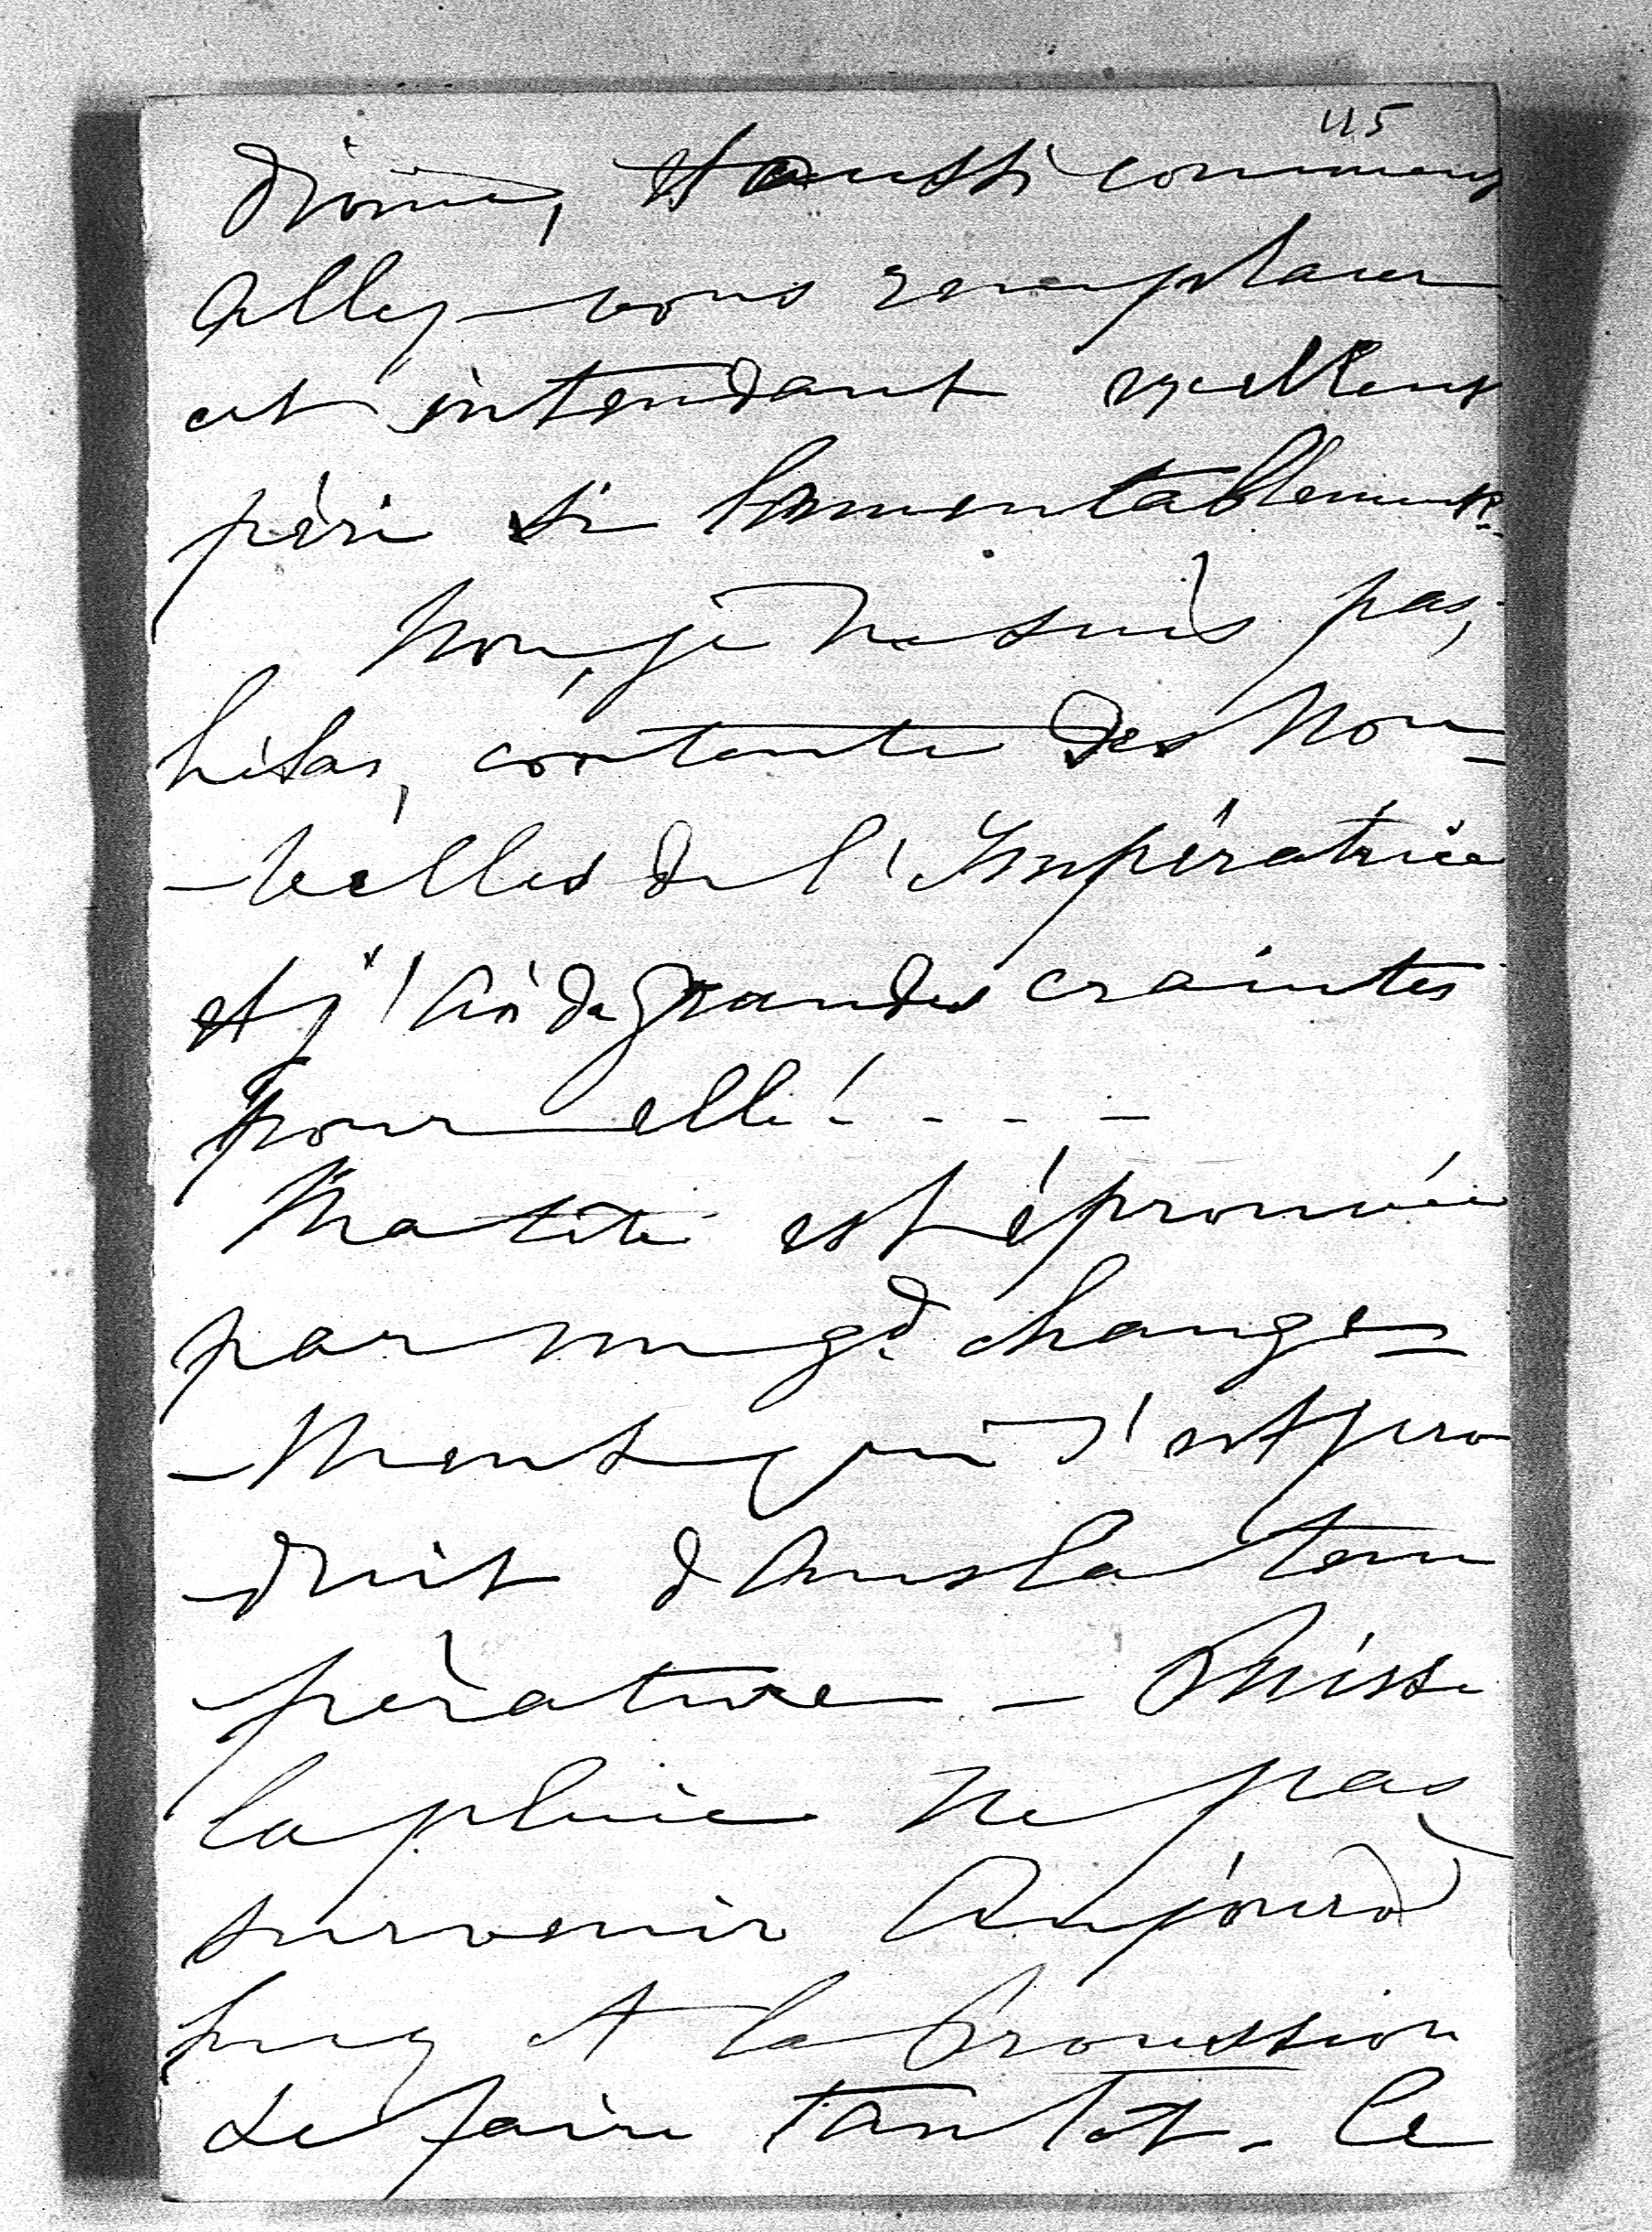 115
et aussi comment
allez-vous remplacer
cet intendant
péri si lamentablement.
Non, je ne suis pas,
hélas, contente des Nou-
-velles de l'Impératrice
et j'ai de grandes craintes
pour elle! - - - -
Ma tête est éprouvée
par un gd. change-
-ment qui s'est pro
duit dans la tem
pérature - Puisse
la pluie ne pas
survenir Aujourd'
huy et la Procession
se faire tantôt - Ce